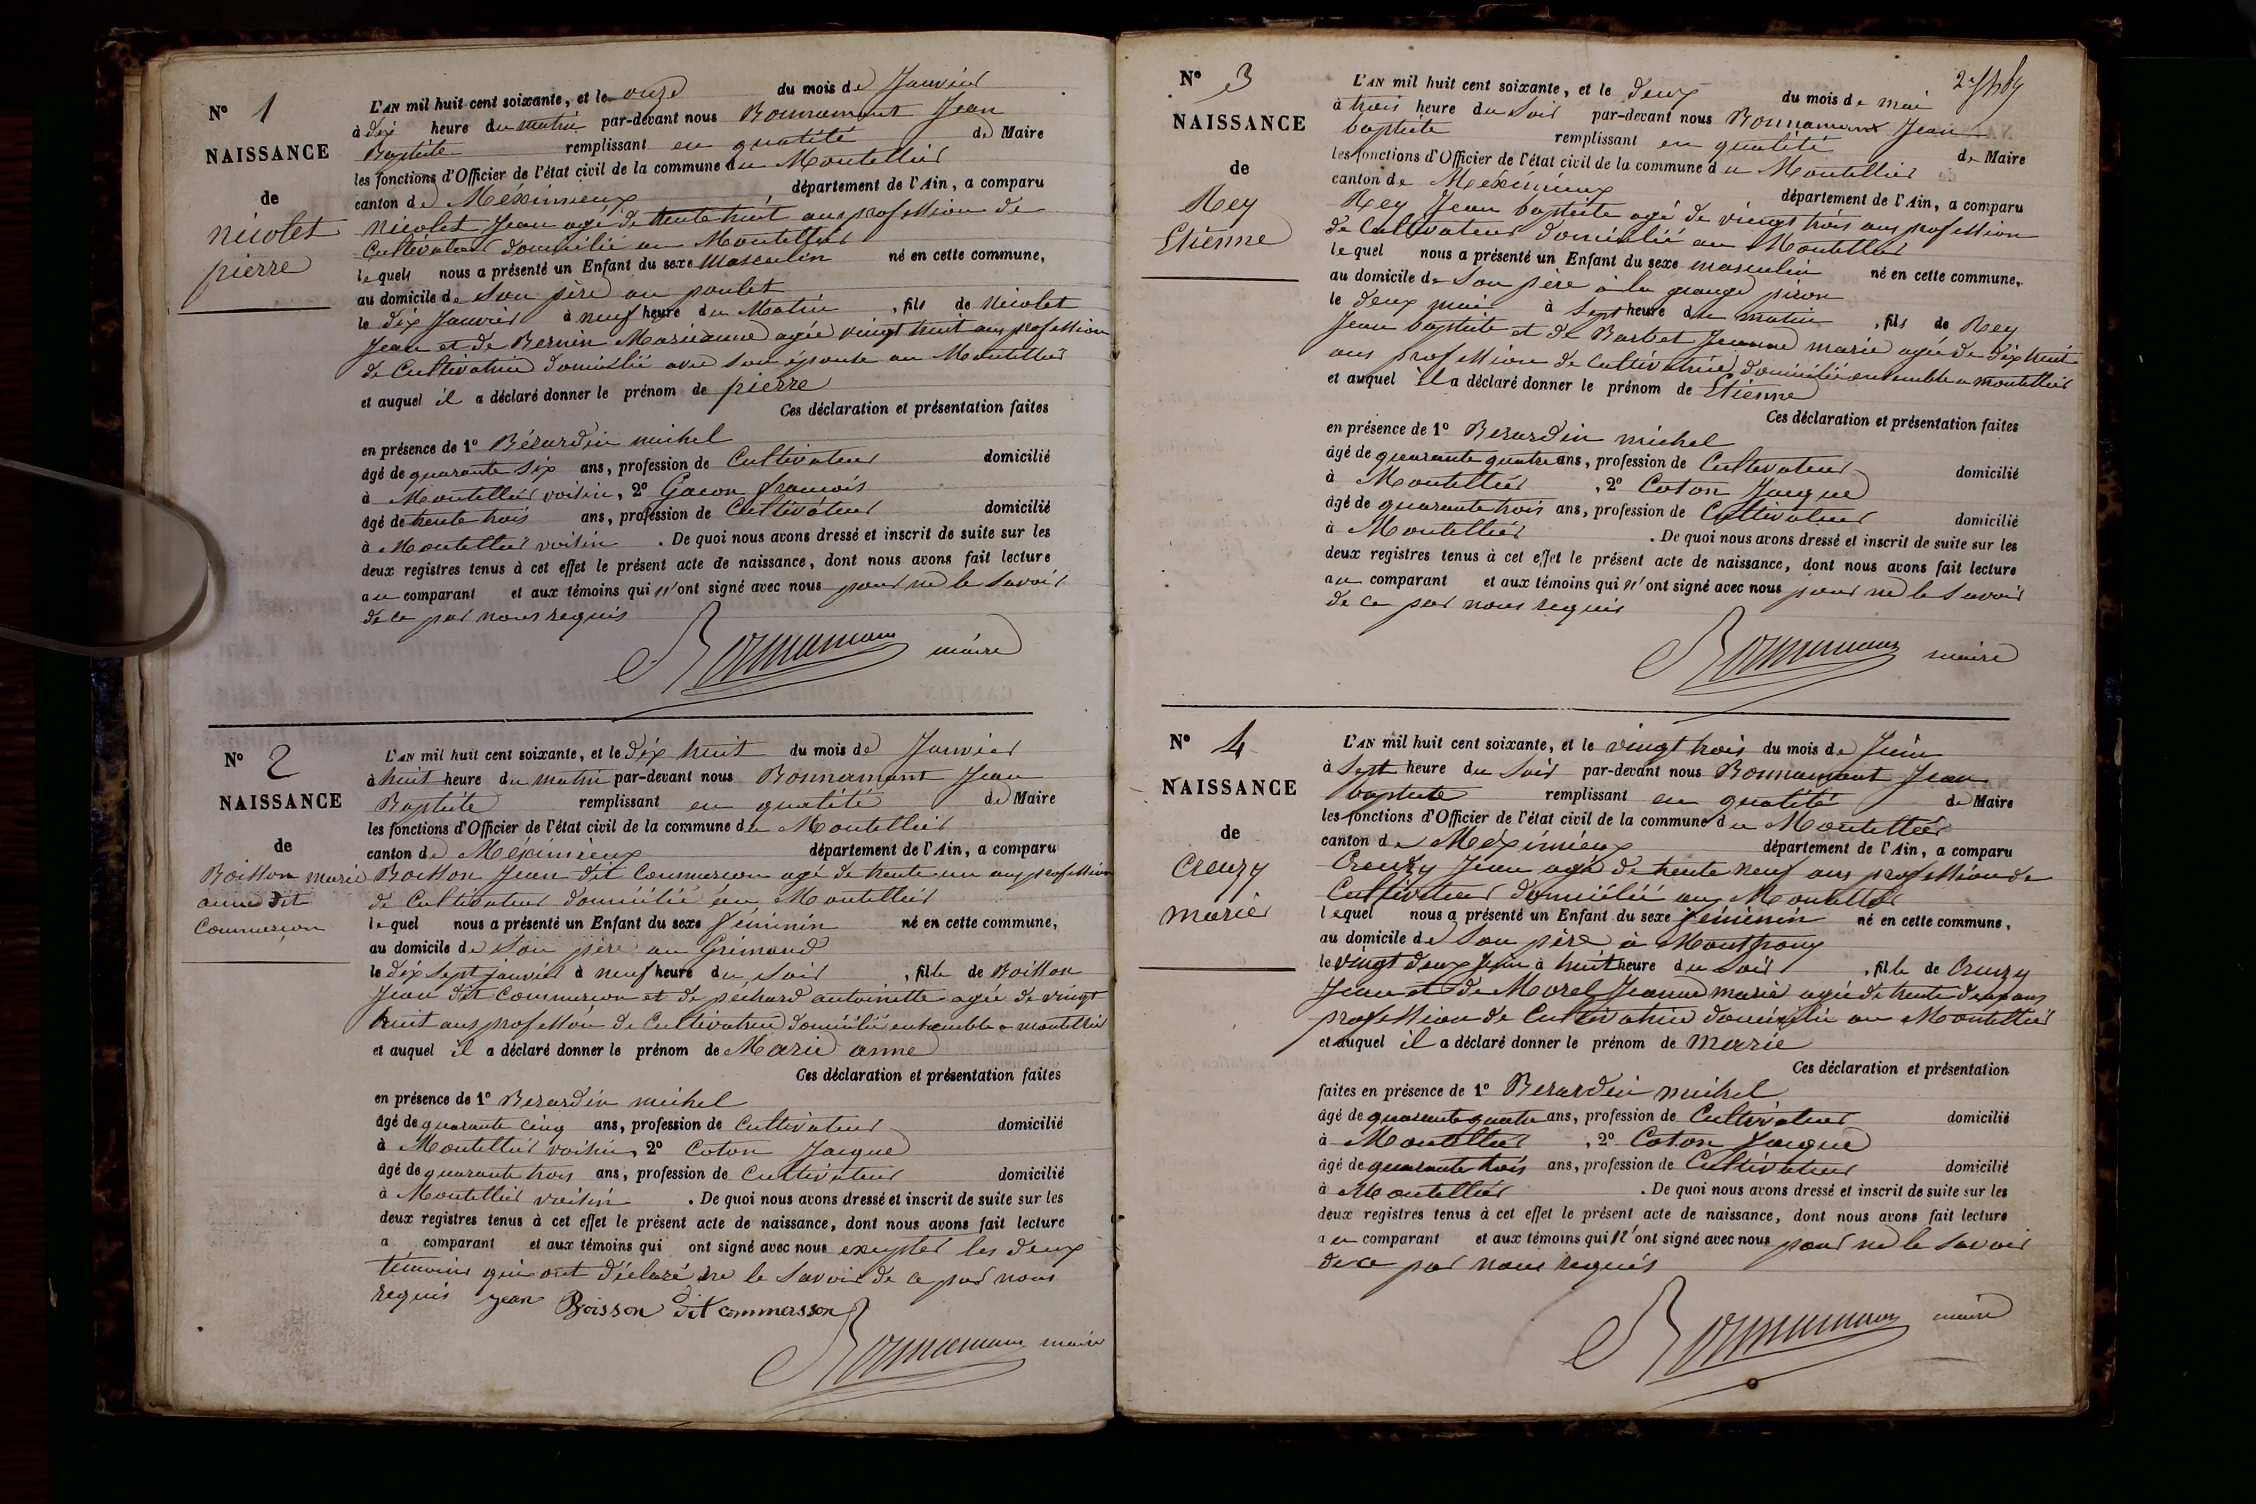 N° 1
NAISSANCE
de
nicolet
pierre
L'AN mil huit cent soixante, et le onze du mois de Janvier
à dix heure du matin par-devant nous Bonnamant Jean
Baptiste remplissant en qualité de Maire
les fonctions d'Officier de l'état civil de la commune du Montellier
canton de Méximieux, département de l'Ain, a comparu
nicolet Jean agé de trente huit ans profession de
Cultivateur domicilié au Montellier
lequel nous a présenté un Enfant du sexe Masculin né en cette commune,
au domicile de son père au poulet
le dix Janvier à neuf heure du Matin, fils de Nicolet
Jean et de Bernin Marieanne agée vingt huit ans profession
de Cultivatrice domiciliée avec son épouse au Montellier
et auquel il a déclaré donner le prénom de pierre
Ces déclaration et présentation faites
en présence de 1° Bérardin michel
âgé de quarante six ans, profession de Cultivateur domicilié
à Montellier voisin, 2° Gacon françois
âgé de trente trois ans, profession de Cultivateur domicilié
à Montellier voisin. De quoi nous avons dressé et inscrit de suite sur les
deux registres tenus à cet effet le présent acte de naissance, dont nous avons fait lecture
au comparant et aux témoins qui n'ont signé avec nous pour ne le savoir
de ce par nous requis
Bonnamant maire
N° 2
NAISSANCE
de
Boisson marie
anne dit
Commerson
L'AN mil huit cent soixante, et le dix huit du mois de Janvier
à huit heure du matin par-devant nous Bonnamant Jean
Baptiste remplissant en qualité de Maire
les fonctions d'Officier de l'état civil de la commune du Montellier
canton de Méximieux département de l'Ain, a comparu
Boisson Jean dit Commerson agé de trente un ans profession
de Cultivateur domicilié au Montellier
lequel nous a présenté un Enfant du sexe féminin né en cette commune,
au domicile de son père au Grimaud
le dix sept janvier à neuf heure du soir, fille de Boisson
Jean dit Commerson et de péchard antoinette agée de vingt
huit ans profession de Cultivatrice domiciliée ensemble a montellier
et auquel il a déclaré donner le prénom de Marie anne
Ces déclaration et présentation faites
en présence de 1° Berardin michel
âgé de quarante cinq ans, profession de Cultivateur domicilié
à Montellier voisin, 2° Coton Jacque
âgé de quarante trois ans, profession de Cultivateur domicilié
à Montellier voisin. De quoi nous avons dressé et inscrit de suite sur les
deux registres tenus à cet effet le présent acte de naissance, dont nous avons fait lecture
a comparant et aux témoins qui ont signé avec nous excepter les deux
témoins qui ont déclaré ne le savoir de ce par nous
requis jean Boisson dit commersson
Bonnamant maire
N° 3
NAISSANCE
de
Rey
Etienne
L'AN mil huit cent soixante, et le deux du mois de mai
à trois heure du soir par-devant nous Bonnamant Jean
baptiste remplissant en qualité de Maire
les fonctions d'Officier de l'état civil de la commune du Montellier
canton de Méximieux département de l'Ain, a comparu
Rey Jean baptiste agé de vingt trois ans profession
de Cultivateur domicilié au Montellier
lequel nous a présenté un Enfant du sexe masculin né en cette commune,
au domicile de son père à la grange piron
le deux mai à sept heure du matin, fils de Rey
Jean baptiste et de Barbet Jeanne marie agée de dix huit
ans profession de cultivatrice domiciliée ensemble a montellier
et auquel il a déclaré donner le prénom de Etienne
Ces déclaration et présentation faites
en présence de 1° Berardin michel
âgé de quarante quatre ans, profession de Cultivateur domicilié
à Montellier, 2° Coton Jacque
âgé de quarante trois ans, profession de Cultivateur domicilié
à Montellier. De quoi nous avons dressé et inscrit de suite sur les
deux registres tenus à cet effet le présent acte de naissance, dont nous avons fait lecture
au comparant et aux témoins qui n'ont signé avec nous pour ne le savoir
de ce par nous requis
Bonnamant maire
N° 4
NAISSANCE
de
Creuzy
marie
L'AN mil huit cent soixante, et le vingt trois du mois de Juin
à sept heure du soir par-devant nous Bonnamant Jean
baptiste remplissant en qualité de Maire
les fonctions d'Officier de l'état civil de la commune du Montellier
canton de Méximieux département de l'Ain, a comparu
Creuzy Jean agé de trente neuf ans profession de
Cultivateur domicilié au Montellier
lequel nous a présenté un Enfant du sexe féminin né en cette commune,
au domicile de son père à Montfroux
le vingt deux Juin à huit heure du soir, fille de Creuzy
Jean et de Morel Jeanne marie agée de trente deux ans
profession de Cultivatrice domiciliée au Montellier
et auquel il a déclaré donner le prénom de Marie
Ces déclaration et présentation
faites en présence de 1° Berardin michel
âgé de quarante quatre ans, profession de Cultivateur domicilié
à Montellier, 2° Coton Jacque
âgé de quarante trois ans, profession de Cultivateur domicilié
à Montellier. De quoi nous avons dressé et inscrit de suite sur les
deux registres tenus à cet effet le présent acte de naissance, dont nous avons fait lecture
au comparant et aux témoins qui n'ont signé avec nous pour ne le savoir
de ce par nous requis
Bonnamant maire